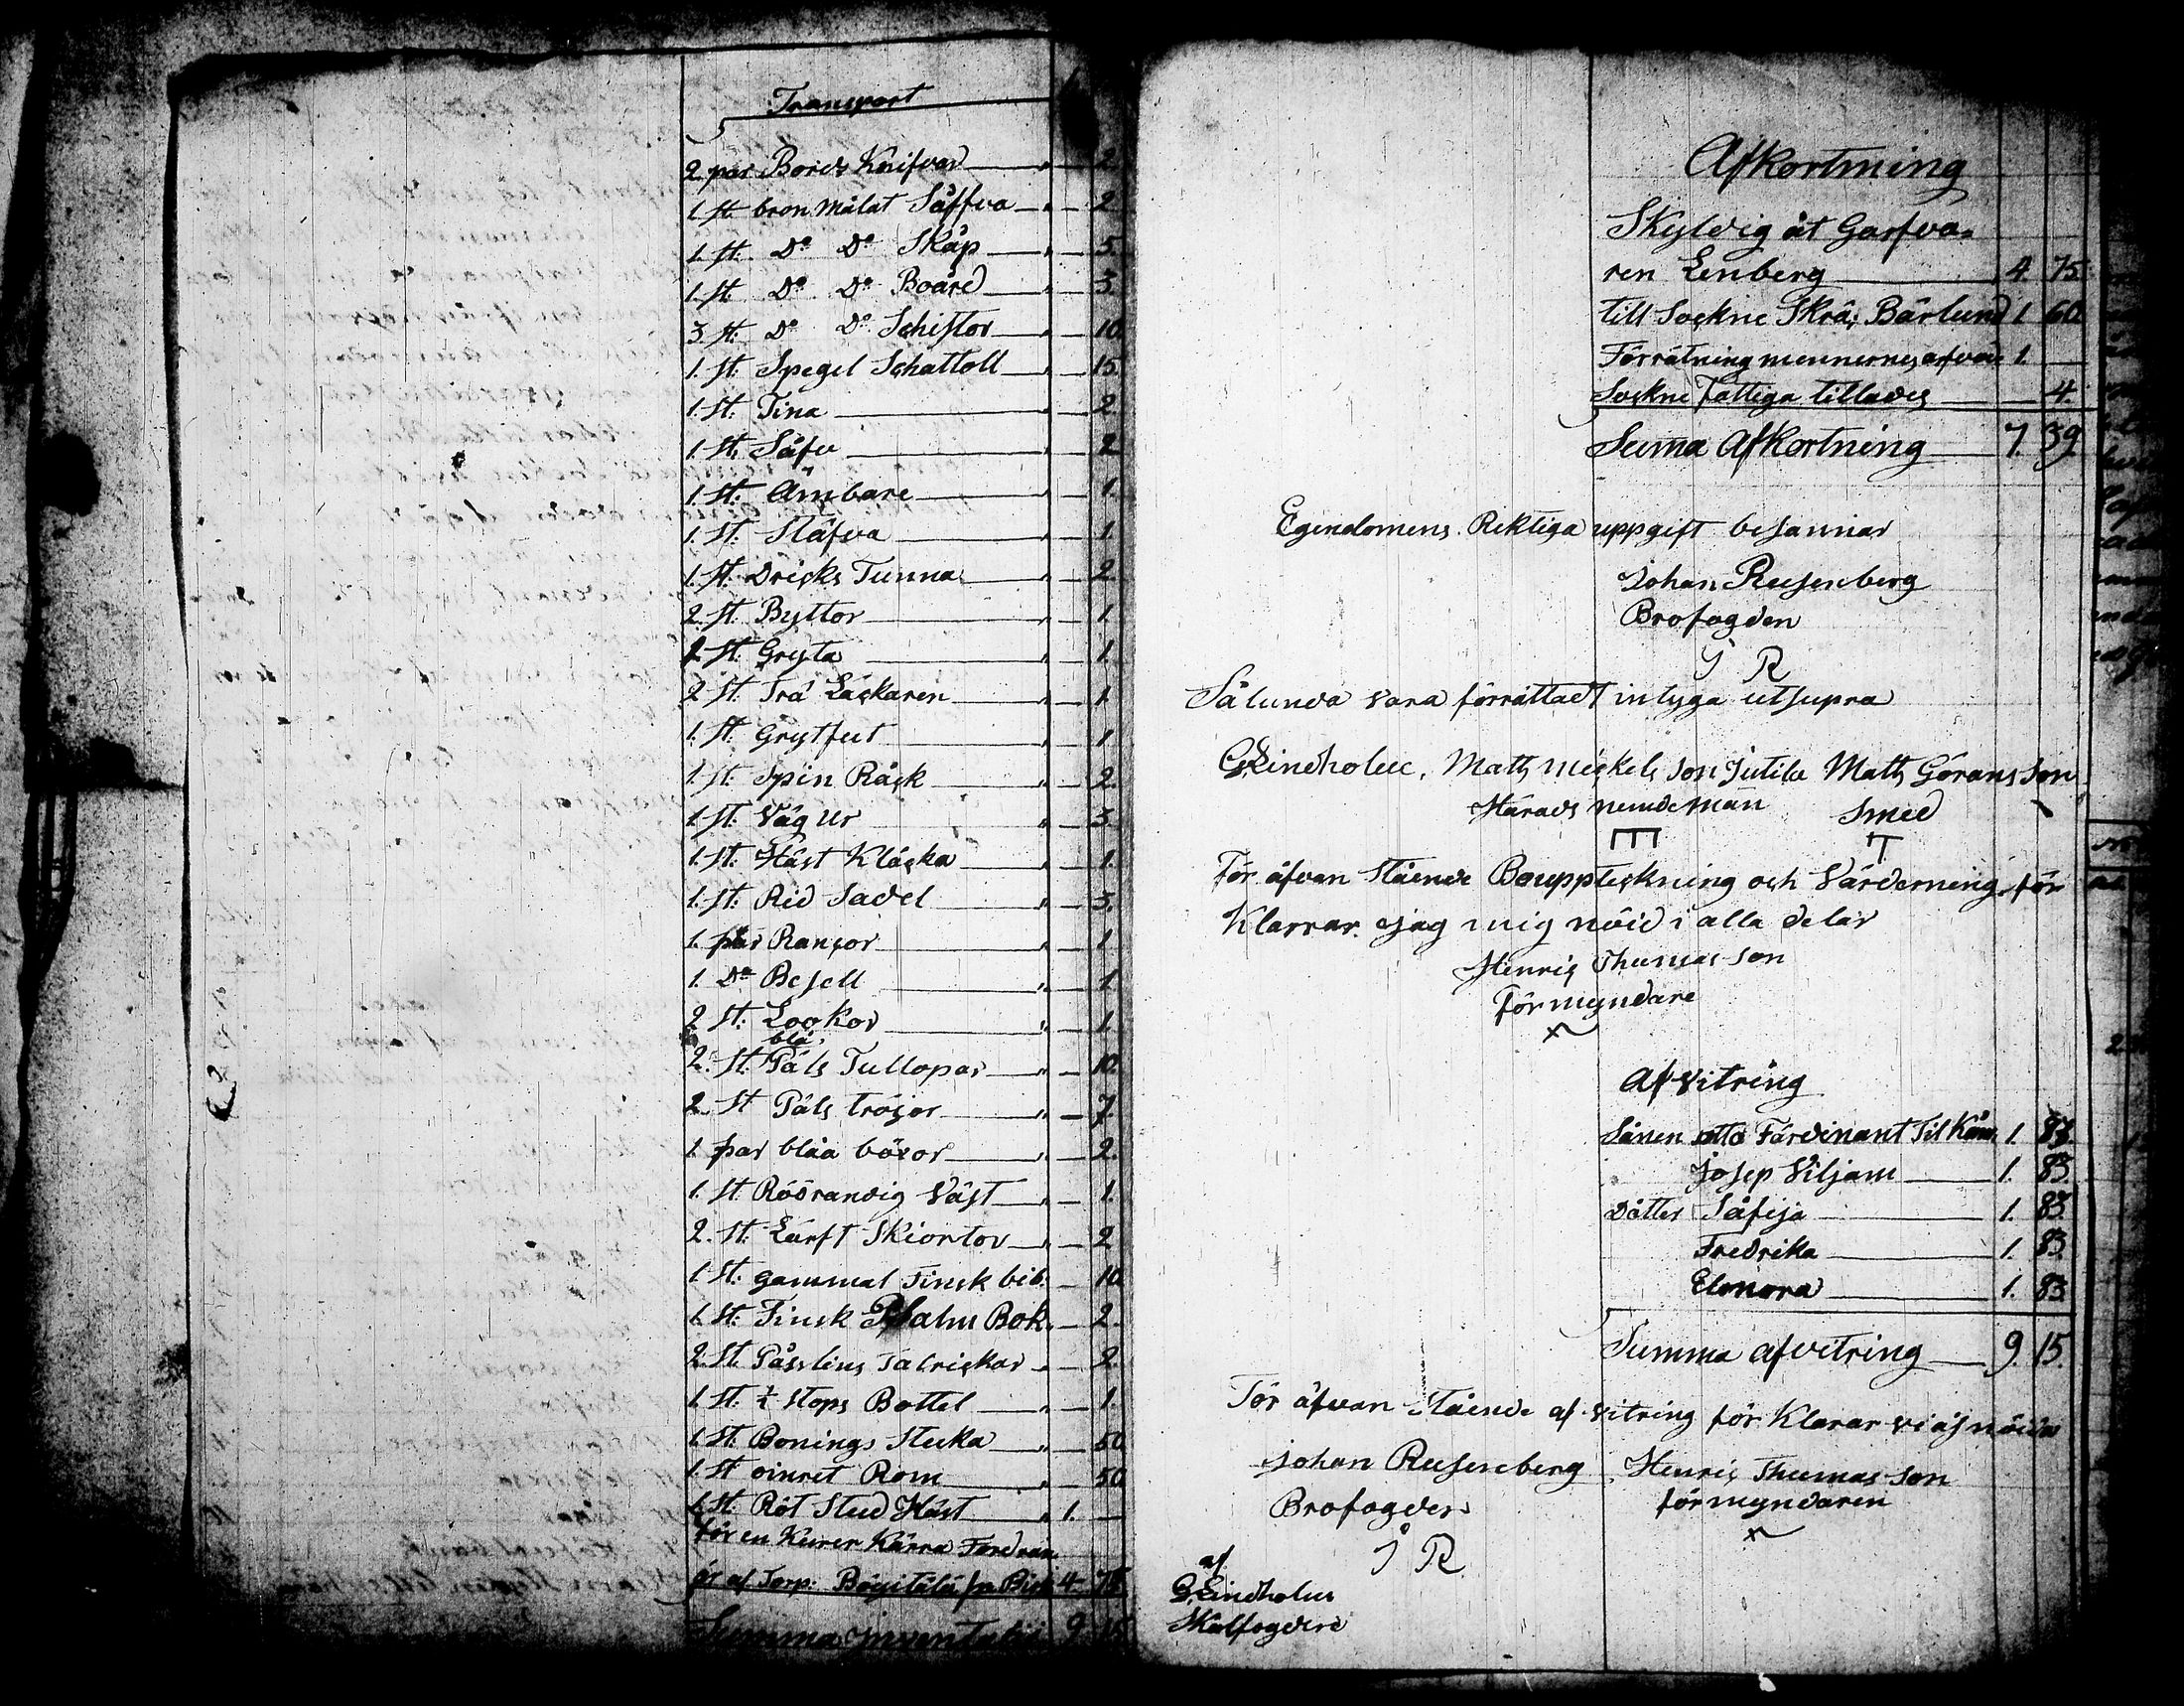 Transport
2 par Bords Knifvar " 2
1 st. bron målat Såffva " 2
1. st. Do Do Skåp " 5.
1. st. Do Do Boård " 3.
3 st. Do Do Schistor " 10
1. st. Spegel Schattoll " 15
1. st. Tina " 2
1. st. Såfv " 2
1. st. Ämbare " 1.
1. St. Stäfva " 1.
1. st. Dricks Tunna " 2.
2. st. Byttor " 1.
1. st. Gryta " 1.
2 st. Trä Läckaren " 1
1. st. Grytfut " 1
1. st. Spin Råck " 2.
1. st. Väg Ur " 3.
1. st. Häst Kläcka " 1.
1. st. Rid Sadel " 3.
1. par Rancor " 1
1. Do Besell " 1
2 st. Lookor " 1.
blå
2. st. Päls Tullopar " 10.
2 st Päls tröjor " 7
1. par blåa böxor " 2.
1. st Rödrandig Väst " 1.
2. st. Lärft Skiortor " 2
1. st. gammal Finsk bib. 10
1. st. Finsk Psalm Bok. 2.
2. st. Påsslins Talrickar " 2
1. st. ½ stops Bottel " 1.
1. st. Bonings Stuka " 50
1. st oinret Rom " 50
1. st. Röt Stud Häst " 1.
för en Kurer Kärra Fordran
är af Torp: 4 75
Summa inventarii 9 15
Afkortning
Skyldig åt Garfva=
ren Lenberg 4. 75
till Sockne Skrä: Bärlund 1 60
Förrätning mennernes arfvode 1.
Sockne Fattiga tillades 4
Summa Afkortning 7. 39
Egendomens Riktiga uppgift besannar
Johan Rusenberg
Brofogden
J R
Sålunda vara förrättadt intyga utsupra
G Lindholm, Matts Mickels son Jutila Matts Görans Son
Härads nemdeman Smed
För åfvan stående Bouppteckning och Värderning för
Klarrar jag mig nöid i alla delar
Henric Thumas son
Förmyndare
x
Afvitring
Sånen otto Färdinant Til Kåm. 1. 83.
Josep Viljam 1. 83.
Dåtter Såfija 1. 83
Fredrika 1. 83.
Elonora 1. 83
Summa afvitring 9. 15.
För åfvan stående af vitring för Klarar vi åss nöida
Johan Rusenberg Henric Thumas son
Brofogden förmyndaren
J R x
af
G Lindholm
Skalfogden